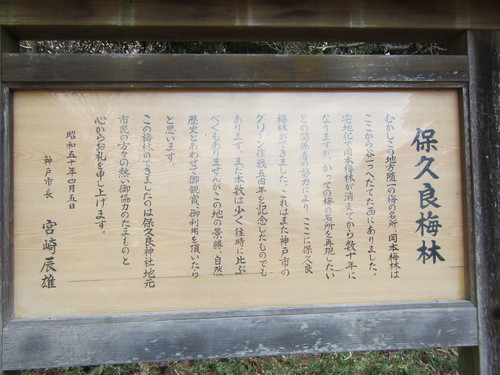 保久良梅林
むかしこの地方随一の梅の名所、岡本梅林は
ここから谷一つへだてた西にありました。
宅地化で岡本梅林が消えてから数十年に
なりますが、かつての梅の名所を再現したい
との関係者の努力により、ここに保久良
梅林ができました。これはまた神戸市の
グリーン作戦五周年を記念したものでも
あります。まだ本数は少く往時に比ぶ
べくもありませんがこの地の景勝、自然
歴史とあわせて御観賞、御利用を頂いたら
と思います。
この梅林ができましたのは保久良神社、地元
市民の方々の熱い御協力のたまものと
心からお礼を申し上げます。
昭和五十年四月五日
神戸市長 宮崎辰雄